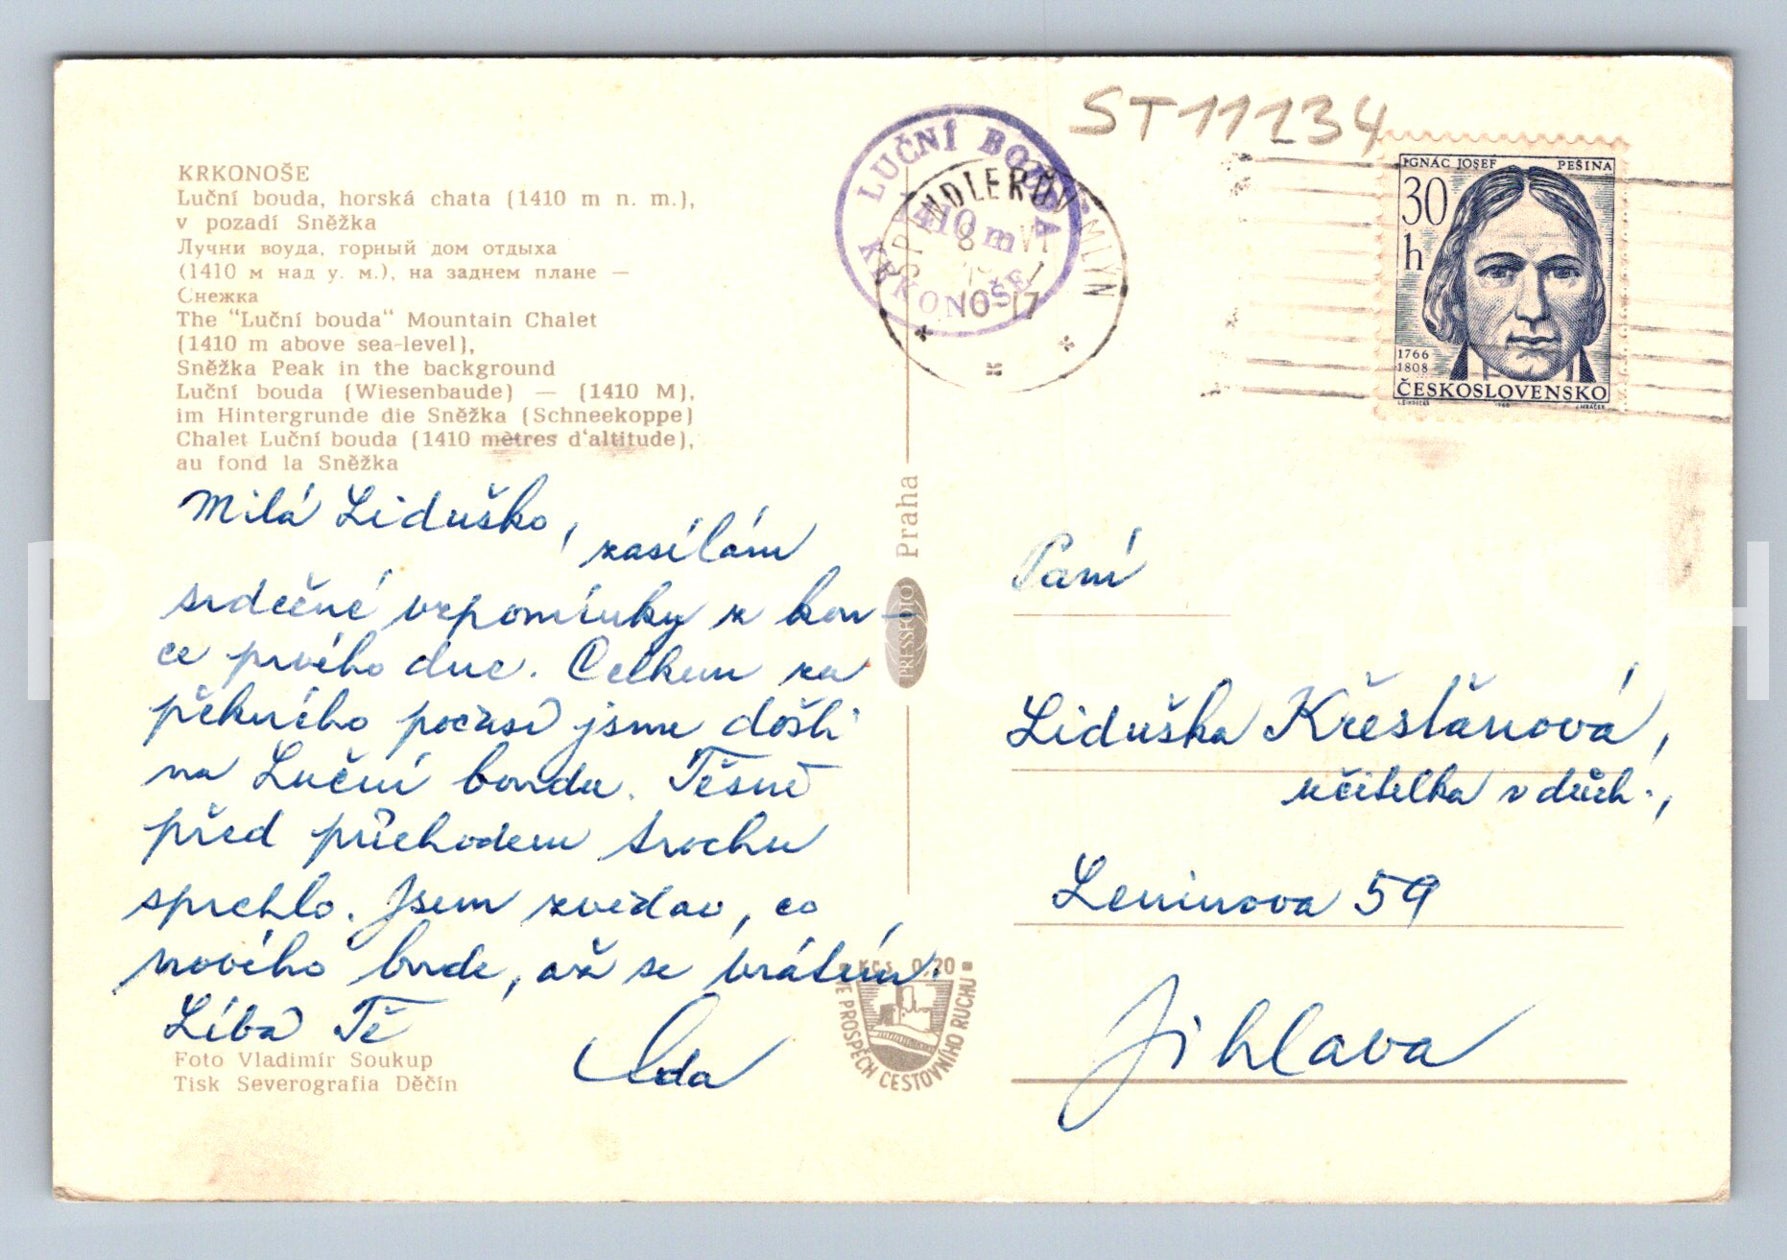 ST11134
KRKONOŠE
Luční bouda, horská chata (1410 m n. m.),
v pozadí Sněžka
Лучни воуда, горный дом отдыха
(1410 м над у. м.), на заднем плане —
Снежка
The "Luční bouda" Mountain Chalet
(1410 m above sea-level),
Sněžka Peak in the background
Luční bouda (Wiesenbaude) — (1410 M),
im Hintergrunde die Sněžka (Schneekoppe)
Chalet Luční bouda (1410 mètres d'altitude),
au fond la Sněžka
Milá Liduško,
zasílám
srdečné vzpomínky z kon-
ce prvého dne. Celkem za
pěkného počasí jsme došli
na Luční boudu. Těsně
před příchodem trochu
sprchlo. Jsem zvědav, co
nového bude, až se vrátím.
Líbá Tě
Foto Vladimír Soukup
Tisk Severografia Děčín
LUČNÍ BOUDA
1410 m
KRKONOŠE
ŠPINDLERŮV MLÝN
8 VI
10-17
Praha
PRESSFOTO
Kčs 0,20
VE PROSPĚCH CESTOVNÍHO RUCHU
IGNÁC JOSEF PEŠINA
30
h
1766
1808
ČESKOSLOVENSKO
Paní
Liduška Křesťanová,
učitelka v důch.,
Leninova 59
Jihlava